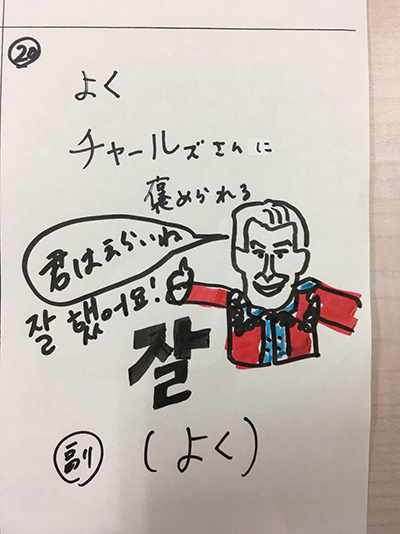 20
よく
チャールズさんに
褒められる
君はえらいね
잘 했어요!
잘
副 (よく)